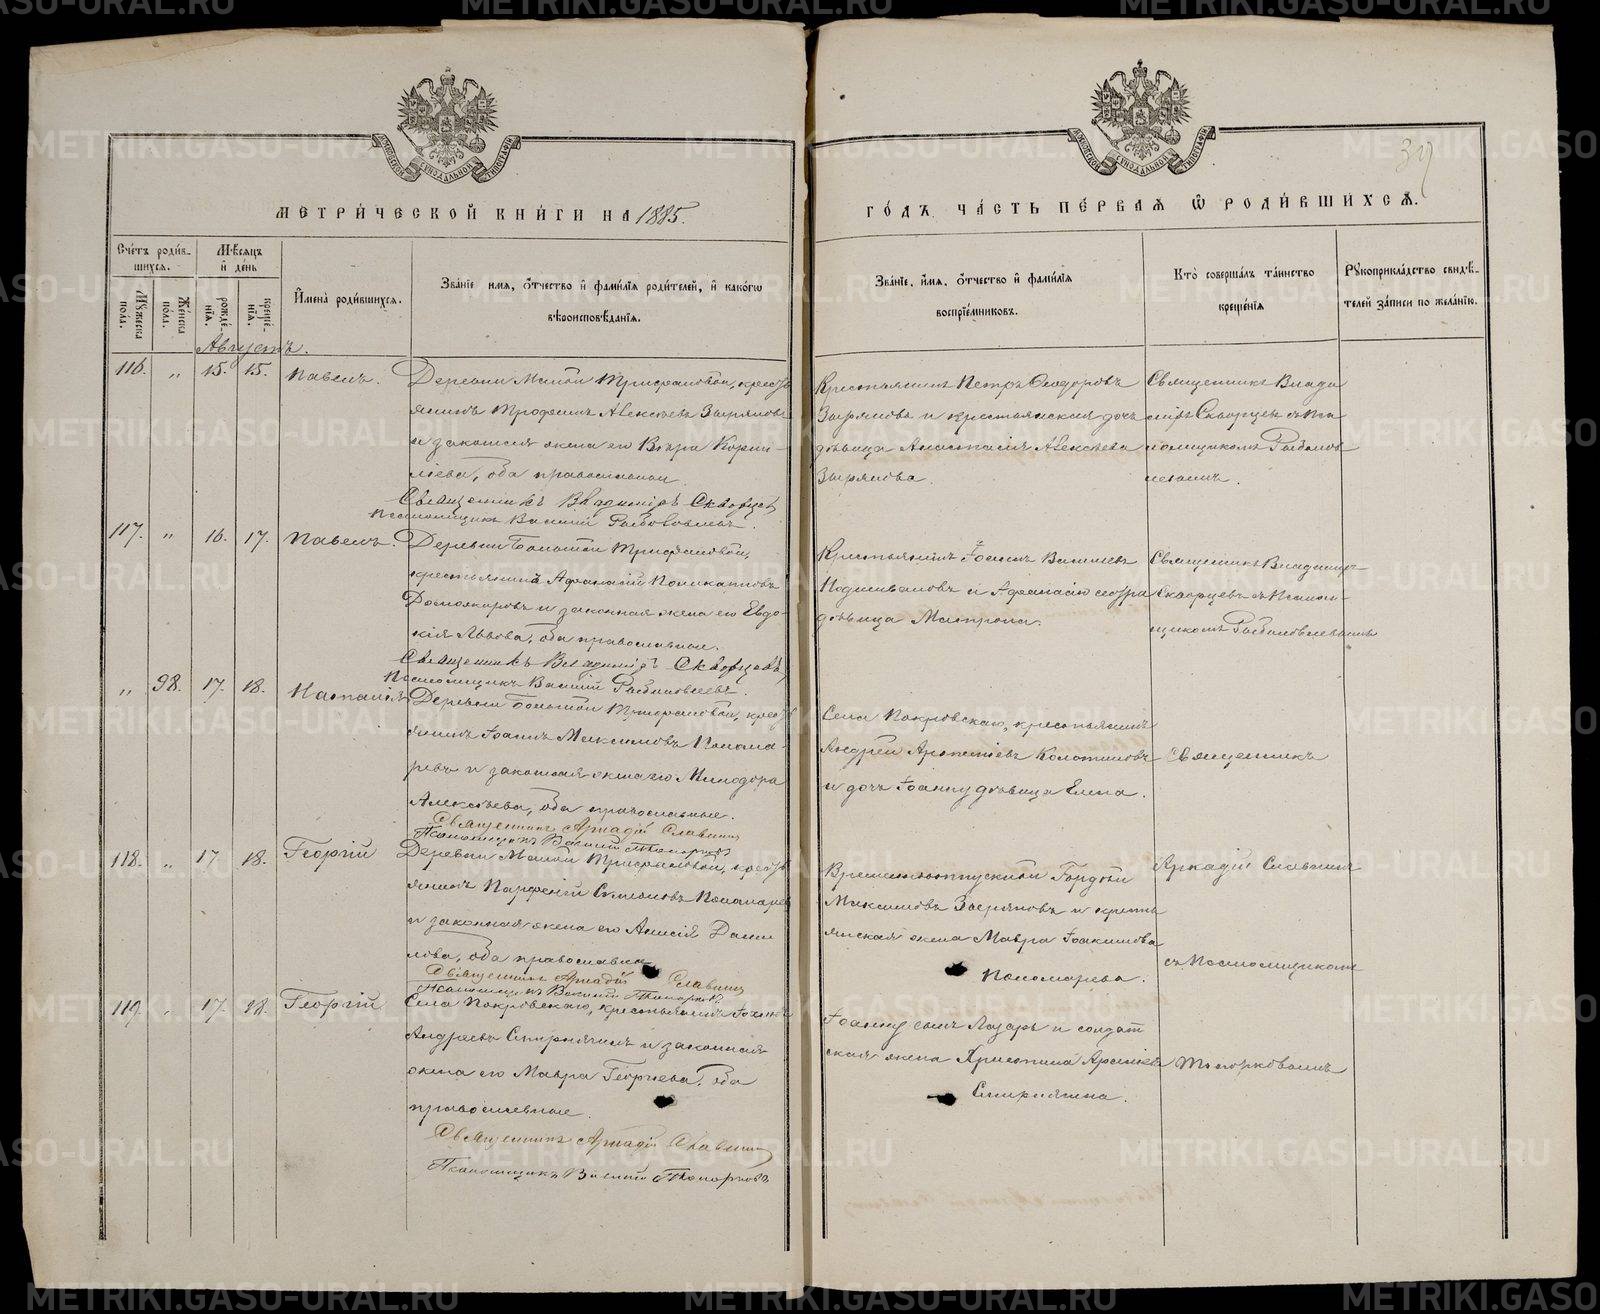 METRIKI.GASO-URAL.RU
39
МОСКОВСКОЙ СѴНОДАЛЬНОЙ ТИПОГРАФІИ
МЕТРИ́ЧЕСКОЙ КНИ́ГИ НА 1885.
ГО́ДЪ ЧА́СТЬ ПЕ́РВАѦ Ѡ҆ РОДИ́ВШИХСѦ.
Сче́тъ роди́вшихсѧ.
Мꙋ́жеска по́ла.
Же́нска по́ла.
Мѣ́сѧцъ и҆ де́нь
рожде́нїѧ.
креще́нїѧ.
И҆мена̀ роди́вшихсѧ.
Зва́нїе имѧ, ѻ҆́тчество и҆ фами́лїѧ роди́телей, и҆ како́гѡ вѣроисповѣ́данїѧ.
Зва́нїе, и҆́мѧ, ѻ҆́тчество и҆ фами́лїѧ воспрїе́мниковъ.
Кто̀ соверша́лъ та́инство креще́нїѧ
Рꙋкоприкла́дство свидѣ́телей за́писи по жела́нїю.
Августъ.
116. „ 15. 15. Павелъ.
Деревни Малой Трифановой, кресть
янинъ Трофимъ Алексѣевъ Зыряновъ
и законная жена его Вѣра Корни-
ліева, оба православныи.
Священникъ Владиміръ Скворцевъ
Псаломщикъ Василій
Крестьянинъ Петръ Ѳеодоровъ
Зыряновъ и крестьянская дочь
дѣвица Анастасія Алексѣева
Зырянова.
Священникъ Влади
міръ Скворцевъ съ Пса
ломщикомъ
117. „ 16. 17. Павелъ.
Деревни Большой Трифановой,
крестьянинъ Афанасій Поликарповъ
и законная жена его Евдо-
кія Львова, оба православные.
Священникъ Владиміръ Скворцевъ
Псаломщикъ Василій
Крестьянинъ Василіевъ
и Афанасію сестра
дѣвица Матрона.
Священникъ Владиміръ
Скворцевъ съ Псалом-
щикомъ
„ 98. 17. 18. Наталія
Деревни Большой Трифановой, кресть
янинъ Іоаннъ Максимовъ Понома-
ревъ и законная жена его Минодора
Алексѣева, оба православные.
Священникъ Аркадій Славнинъ
Псаломщикъ Василій Топорковъ
Села Покровскаго, крестьянинъ
Андрей
и дочь Іоанну дѣвица Елена.
Священникъ
118. „ 17. 18. Георгій
Деревни Малой Трифановой, кресть
янинъ Парфеній Пономаревъ
и законная жена его Анисія Дани
лова, оба православные
Священникъ Аркадій Славнинъ
Псаломщикъ Василій Топорковъ
Временноотпускной Гордѣй
Максимовъ Зыряновъ и кресть
янская жена Мавра Іоакимова
Пономарева.
Аркадій Славнинъ
съ Псаломщикомъ
119. „ 17. 18. Георгій
Села Покровскаго, крестьянинъ
Андреевъ и законная
жена его Мавра Георгіева, оба
православные.
Священникъ Аркадій Славнинъ
Псаломщикъ Василій Топорковъ
Іоанну сынъ Лазарь и солдат
ская жена Христина
Топорковымъ